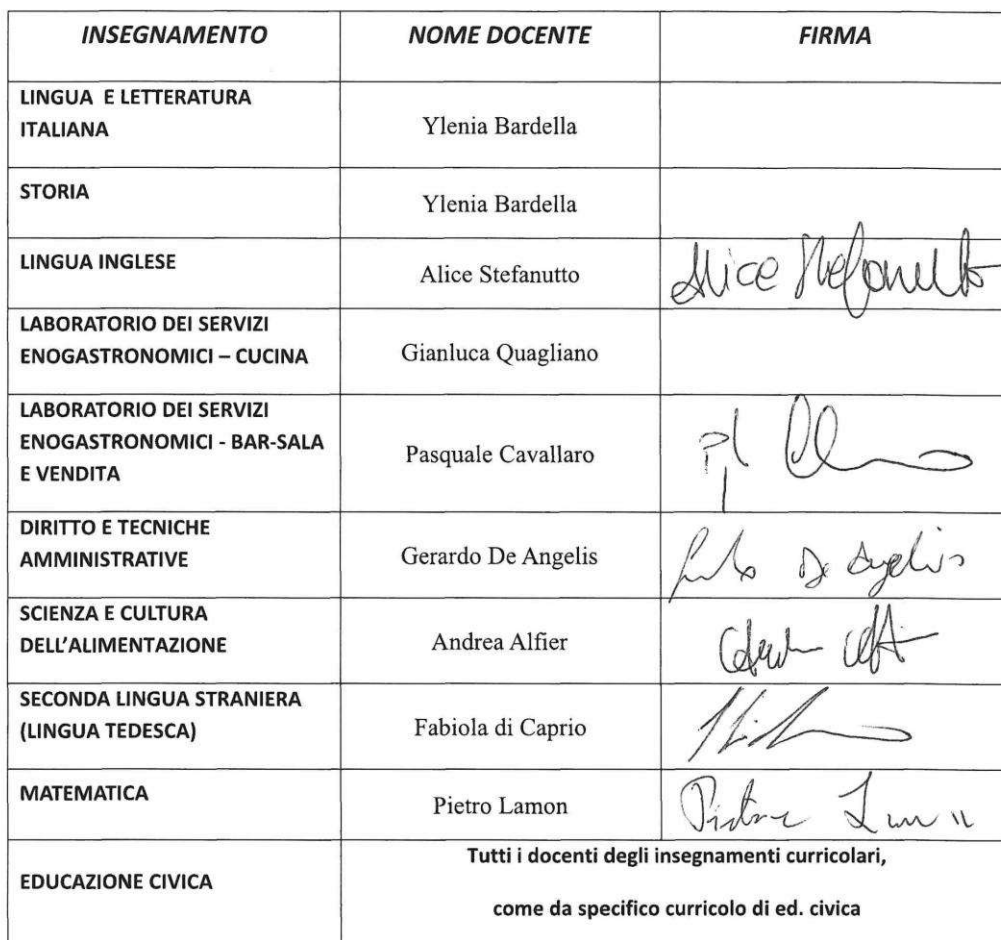 INSEGNAMENTO NOME DOCENTE FIRMA
LINGUA E LETTERATURA
ITALIANA
Ylenia Bardella
STORIA
Ylenia Bardella
LINGUA INGLESE
Alice Stefanutto
Alice Stefanutto
LABORATORIO DEI SERVIZI
ENOGASTRONOMICI – CUCINA
Gianluca Quagliano
LABORATORIO DEI SERVIZI
ENOGASTRONOMICI - BAR-SALA
E VENDITA
Pasquale Cavallaro
DIRITTO E TECNICHE
AMMINISTRATIVE
Gerardo De Angelis
De Angelis
SCIENZA E CULTURA
DELL’ALIMENTAZIONE
Andrea Alfier
SECONDA LINGUA STRANIERA
(LINGUA TEDESCA)
Fabiola di Caprio
MATEMATICA
Pietro Lamon
EDUCAZIONE CIVICA
Tutti i docenti degli insegnamenti curricolari,
come da specifico curricolo di ed. civica